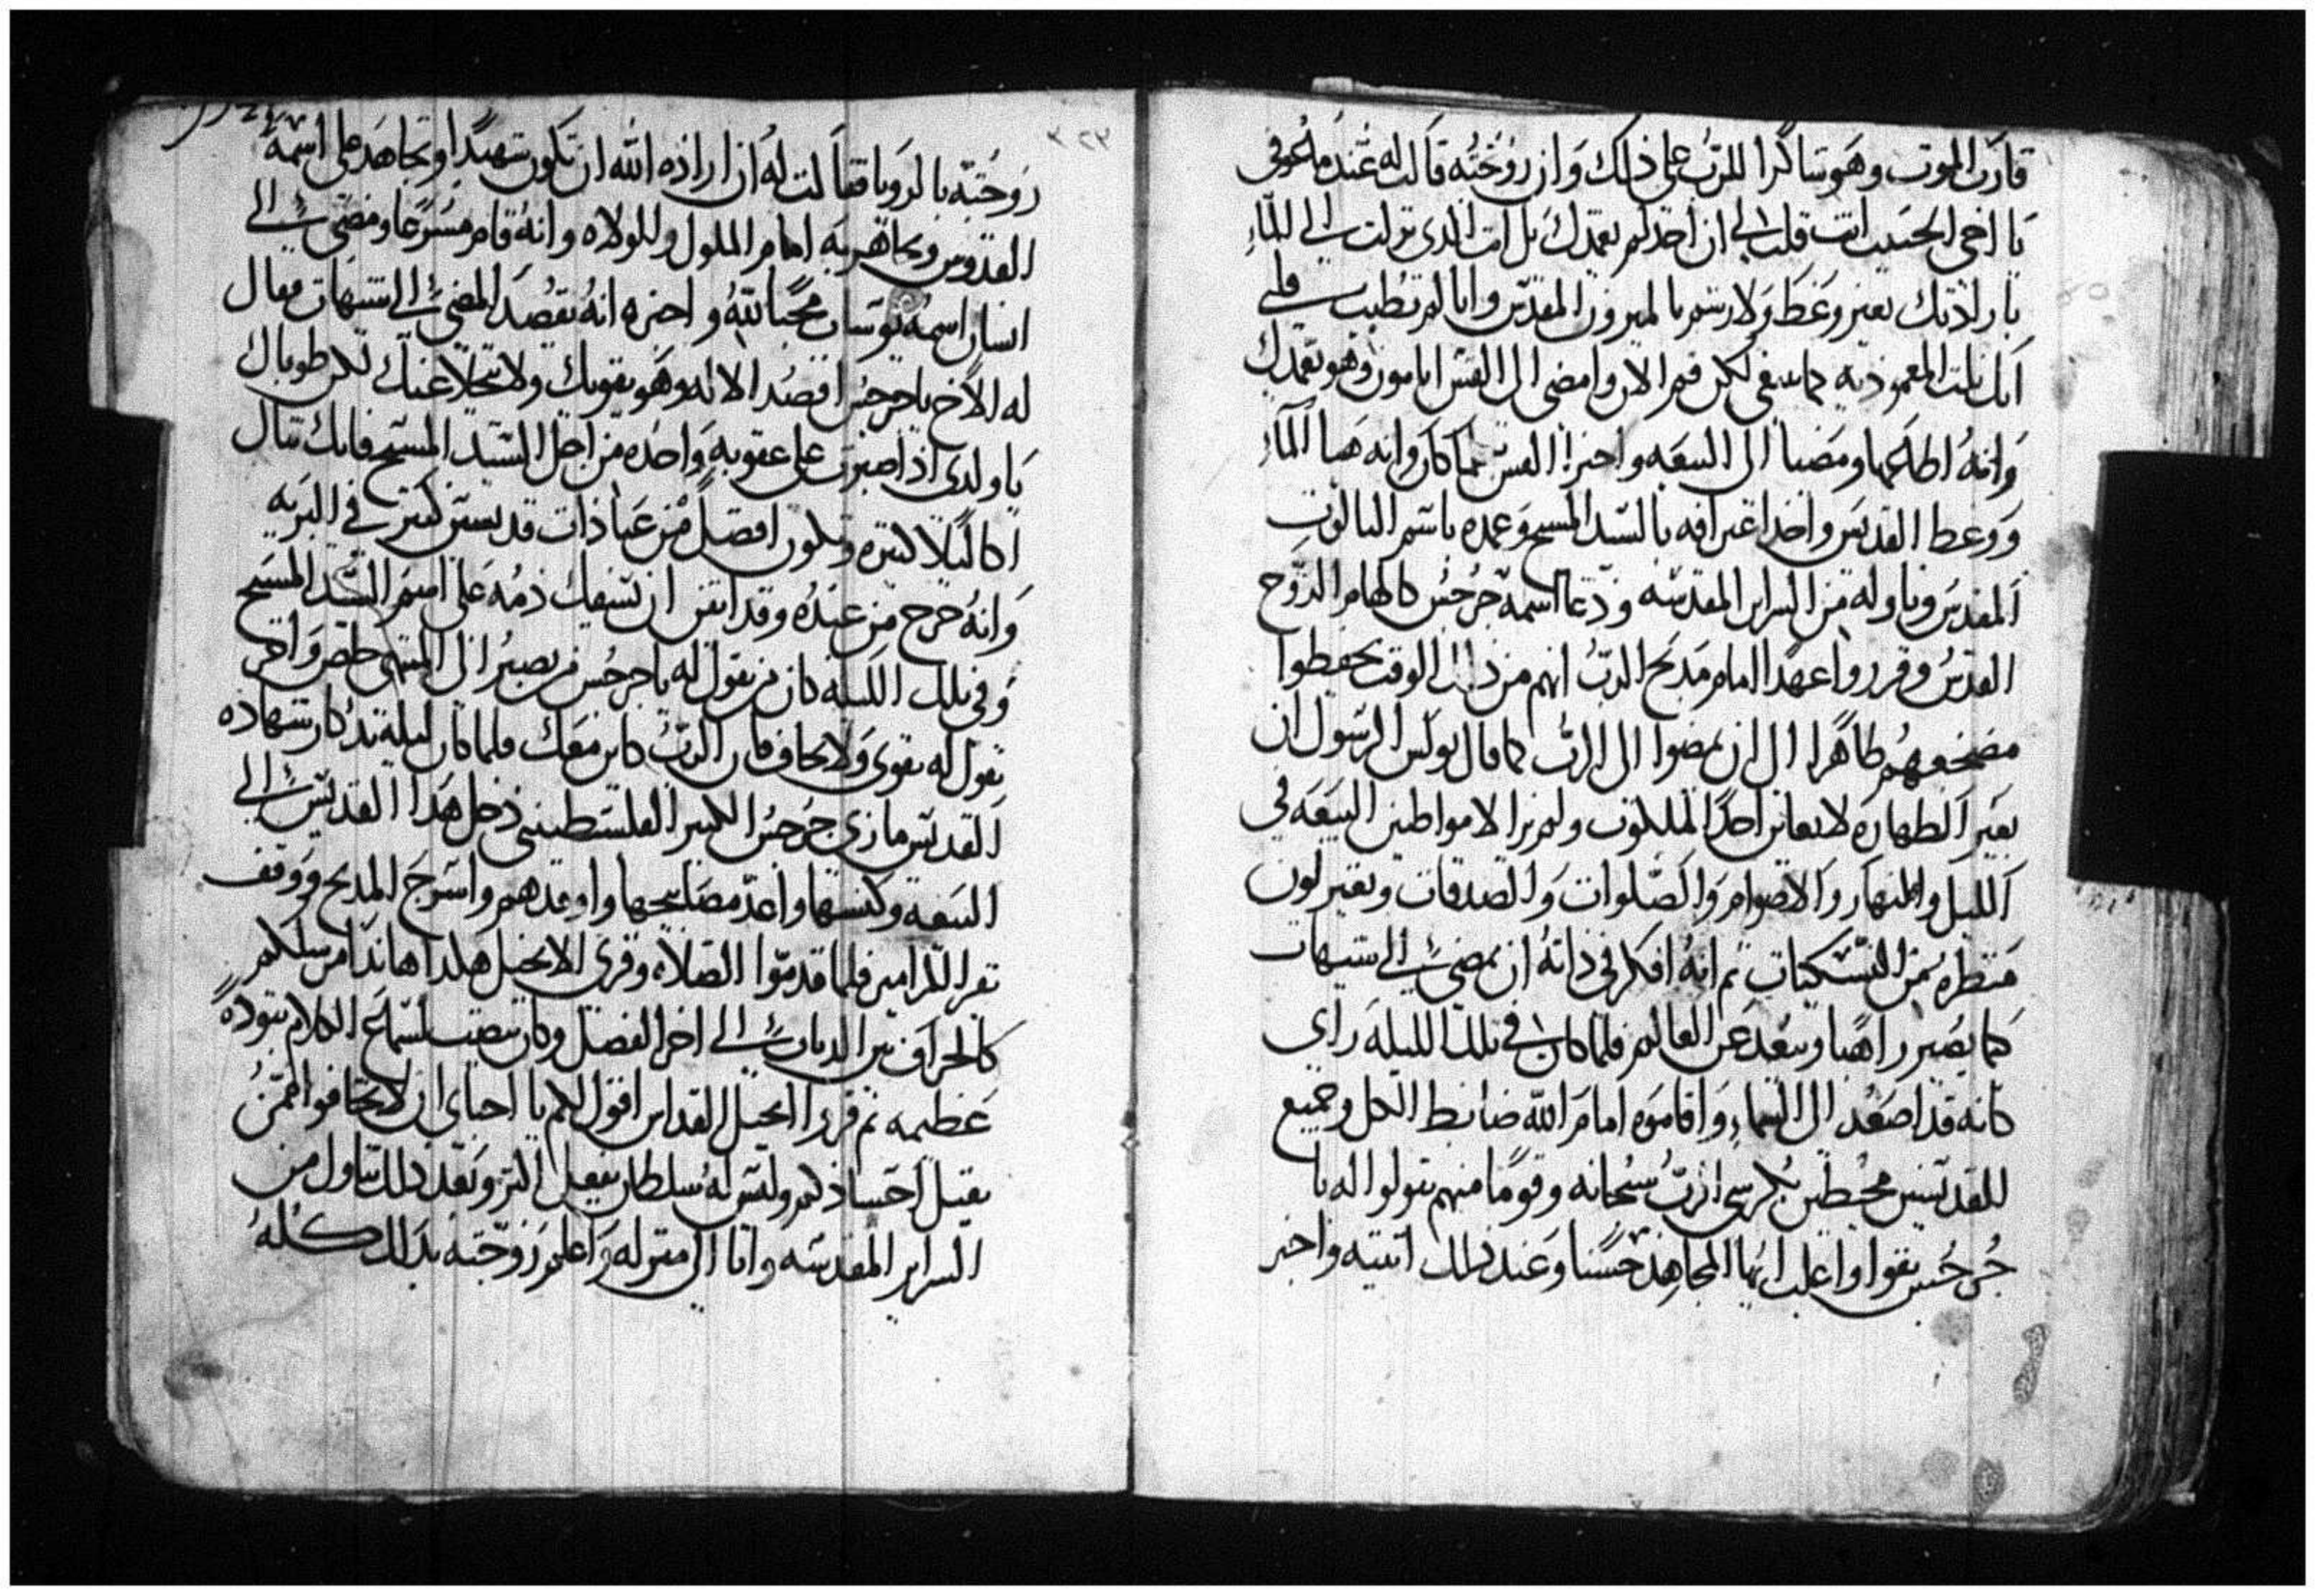 قارب الموت وهو شاكرا للرب على ذلك وان زوجته قالت له عند ما عوفي
يا اخي الحبيب انت قلت لي ان احد لم يعمدك بل انت الدي نزلت الى الماء
بارادتك بغير وعظ ولا رشم بالميرون المقدس وانا لم تطيب قلبي
انك نلت المعموديه كما ينبغي لكن قم الان وامضي الى القس ابامون وهو يعمدك
وانه اطاعها ومضيا الى البيعه واخبرا القس بما كان وانه هيا الماء
ووعظ القديس واخد اعترافه بالسيد المسيح وعمده باسم التالوت
المقدس وناوله من السراير المقدسه ودعا اسمه جرجس كالهام الروح
القدس وقرروا عهدا امام مدبح الرب انهم من دلك الوقت يحفظوا
مضجعهم طاهرا الى ان يمضوا الى الرب كما قال بولس الرسول ان
بغير الطهاره لا يعاين احدا الملكوت ولم يزالا مواظبين البيعه في
الليل والنهار والاصوام والصلوات والصدقات ويعتزلون
منظرهم من التسكيات تم انه افكر في داته ان يمضي الى شيهات
كما يصير راهبا ويبعد عن العالم فلما كان في تلك الليله راي
كانه قد اصعد الى السماء واقاموه امام الله ضابط الكل وجميع
للقديسين محيطين بكرسي الرب سبحانه وقوما منهم يقولوا له يا
جرجس تقوا واغلب ايها المجاهد حسنا وعند دلك انتبه واخبر
زوجته بالرويا فقالت له ان اراده الله ان تكون شهيدا وتجاهد على اسمه
القدوس وتجاهر به امام الملوك والولاه وانه قام مسرعا ومضى الى
انسان اسمه توسان محبا لله واخبره انه يقصد المضي الى شيهات فقال
له الاخ يا جرجس اقصد الاله وهو يقويك ولا يتخلا عنك لكن طوباك
يا ولدي ادا صبرت على عقوبه واحده من اجل السيد المسيح فانك تنال
اكاليلا كتيره وتكون افضل من عبادات قديسين كتير في البريه
وانه خرج من عنده وقد اتقن ان يسفك دمه على اسم السيد المسيح
وفي تلك الليله كان من يقول له يا جرجس من يصبر الى المنتهى خلص واخر
يقول له تقوى ولا تخاف فان الرب كاين معك فلما كان ليله تدكار شهاده
القديس ماري جرجس الكبير الفلسطيني دخل هدا القديس الى
البيعه وكنسها واعد مصابيحها واوقدهم واسرج المدبح ووقف
يقرا المزامير فلما قدموا الصلاه وقرى الانجيل هكدا هاندا مرسلكم
كالخراف بين الدياب الى اخر الفصل وكان ينصت لسماع الكلام بتوده
عظيمه تم قروا انجيل القداس اقول لكم يا احباي ان لا تخافوا ممن
يقتل اجسادكم وليس له سلطان يفعل اكتر وبعد دلك تناول من
السراير المقدسه واتا الى منزله واعلم زوجته بدلك كله